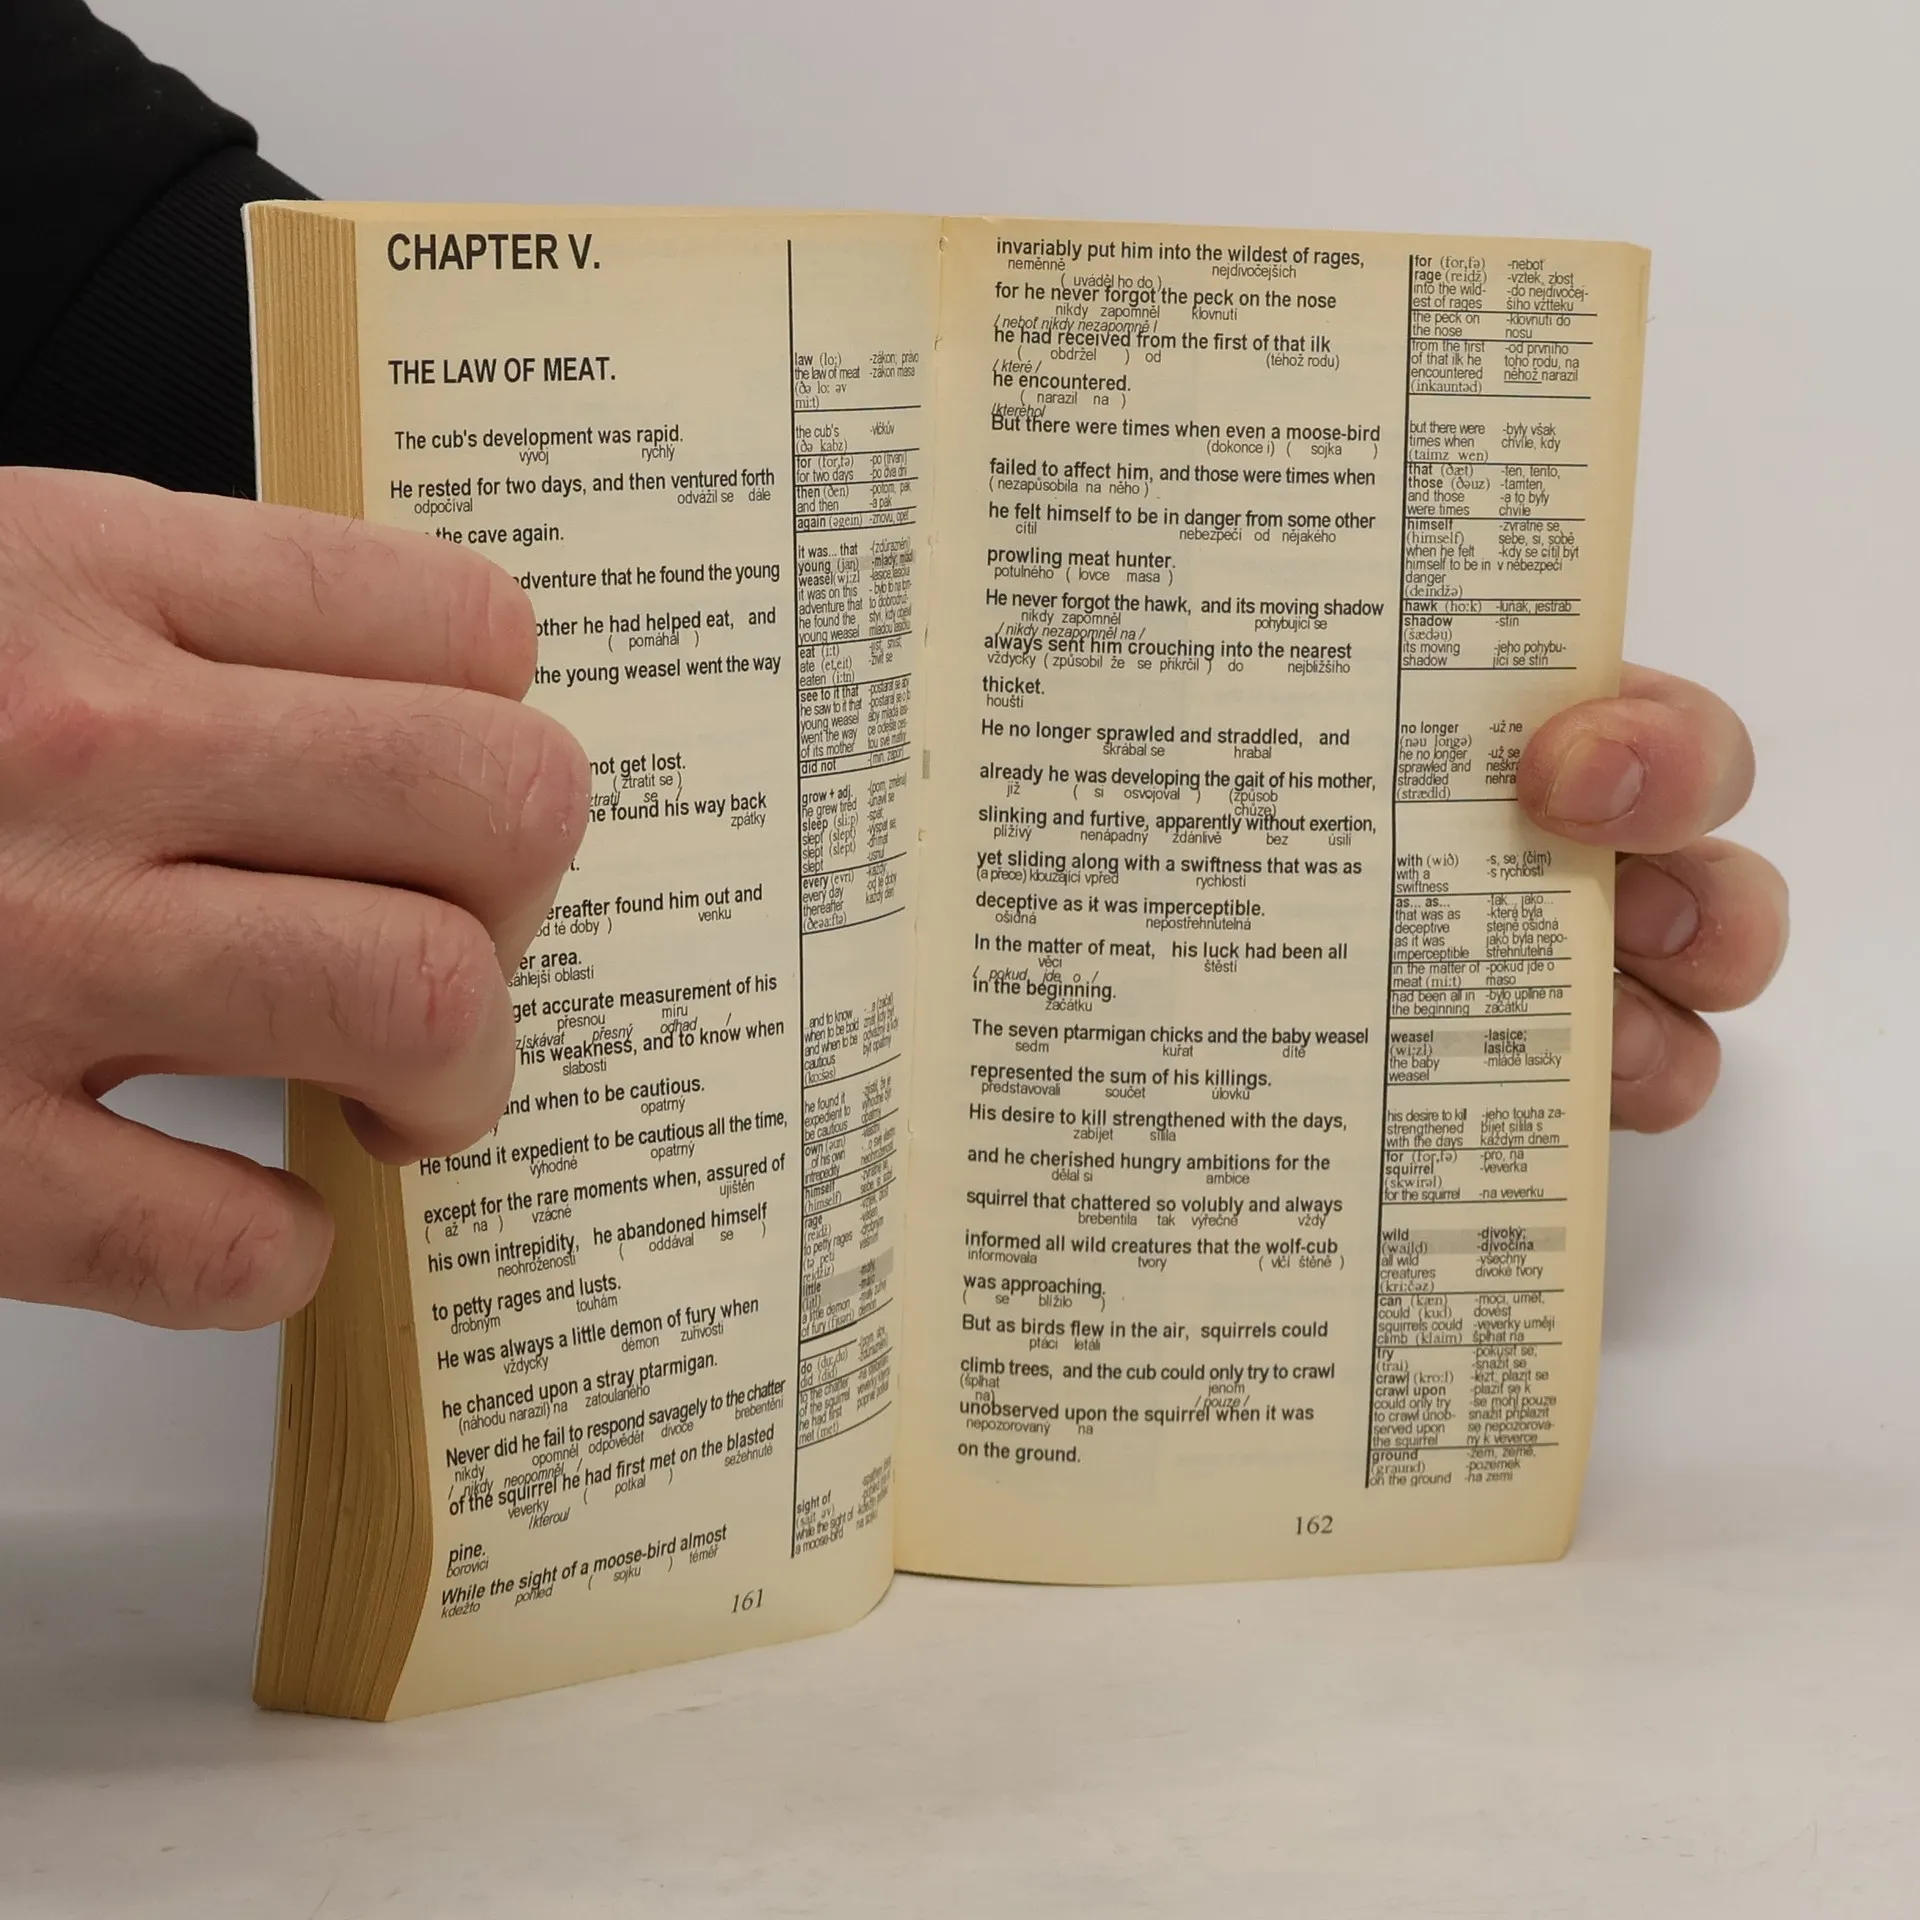 CHAPTER V.
THE LAW OF MEAT.
The cub's development was rapid.
vývoj rychlý
He rested for two days, and then ventured forth
odpočíval odvážil se dále
the cave again.
adventure that he found the young
other he had helped eat, and
( pomáhal )
the young weasel went the way
not get lost.
( ztratit se )
ztratil se /
he found his way back
zpátky
ereafter found him out and
od té doby ) venku
er area.
sáhlejší oblasti
get accurate measurement of his
přesnou míru
získávat přesný odhad /
his weakness, and to know when
slabosti
and when to be cautious.
opatrný
He found it expedient to be cautious all the time,
výhodné opatrný
except for the rare moments when, assured of
( až na ) vzácné ujištěn
his own intrepidity, he abandoned himself
neohroženosti ( oddával se )
to petty rages and lusts.
drobným touhám
He was always a little demon of fury when
vždycky démon zuřivosti
he chanced upon a stray ptarmigan.
(náhodu narazil) na zatoulaného
Never did he fail to respond savagely to the chatter
nikdy opomněl odpovědět divoce brebentění
/ nikdy neopomněl /
of the squirrel he had first met on the blasted
veverky ( potkal ) sežehnuté
/kterou/
pine.
borovici
While the sight of a moose-bird almost
kdežto pohled ( sojku ) téměř
161
law (lo:) -zákon; právo
the law of meat -zákon masa
(ðə lo: əv
mi:t)
the cub's -vlčkův
(ðə kabz)
for (for,fə) -po (trvání)
for two days -po dva dni
then (ðen) -potom, pak
and then -a pak
again (əgein) -znovu, opět
it was... that -(zdůraznění)
young (jaŋ) -mladý; mládě
weasel (wi:zl
it was on this
adventure that
he found the
young weasel
eat (i:t)
ate (et,eit) -živit se
eaten (i:tn)
see to it that
he saw to it that
young weasel
went the way
of its mother
did not
grow + adj.
he grew tired -unavil se
sleep (sli:p) -spát
slept (slept)
slept (slept)
slept -usnul
every (evri) -každý
every day
thereafter každý den
(ðeəa:ftə)
...and to know
when to be bold
and when to be
cautious být opatrný
(ko:šəs)
he found it
expedient to
be cautious opatrný
own (əun)
...of his own
intrepidity
himself
(himself)
rage
(reidž)
to petty rages
(tə peti
reidžiz)
little
(litl)
a little demon
of fury (fjuəri)
do (du:,du)
did (did)
to the chatter
of the squirrel
he had first
met (met)
sight of
(sait əv)
while the sight of
a moose-bird na sojku
invariably put him into the wildest of rages,
neměnně nejdivočejších
( uváděl ho do )
for he never forgot the peck on the nose
nikdy zapomněl klovnutí
/ neboť nikdy nezapomně /
he had received from the first of that ilk
( obdržel ) od (téhož rodu)
/ které /
he encountered.
( narazil na )
/kterého/
But there were times when even a moose-bird
(dokonce i) ( sojka )
failed to affect him, and those were times when
( nezapůsobila na něho )
he felt himself to be in danger from some other
cítil nebezpečí od nějakého
prowling meat hunter.
potulného ( lovce masa )
He never forgot the hawk, and its moving shadow
nikdy zapomněl pohybující se
/ nikdy nezapomněl na /
always sent him crouching into the nearest
vždycky ( způsobil že se přikrčil ) do nejbližšího
thicket.
houští
He no longer sprawled and straddled, and
škrábal se hrabal
already he was developing the gait of his mother,
již ( si osvojoval ) (způsob
chůze)
slinking and furtive, apparently without exertion,
plíživý nenápadný zdánlivě bez úsilí
yet sliding along with a swiftness that was as
(a přece) klouzající vpřed rychlostí
deceptive as it was imperceptible.
ošidná nepostřehnutelná
In the matter of meat, his luck had been all
věci štěstí
/ pokud jde o /
in the beginning.
začátku
The seven ptarmigan chicks and the baby weasel
sedm kuřat dítě
represented the sum of his killings.
představovali součet úlovků
His desire to kill strengthened with the days,
zabíjet sílila
and he cherished hungry ambitions for the
dělal si ambice
squirrel that chattered so volubly and always
brebentila tak výřečně vždy
informed all wild creatures that the wolf-cub
informovala tvory ( vlčí štěně )
was approaching.
( se blížilo )
But as birds flew in the air, squirrels could
ptáci létali
climb trees, and the cub could only try to crawl
(šplhat jenom
na) / pouze /
unobserved upon the squirrel when it was
nepozorovaný na
on the ground.
162
for (for,fə) -neboť
rage (reidž) -vztek, zlost
into the wild- -do nejdivočej-
est of rages šího vztteku
the peck on -klovnutí do
the nose nosu
from the first -od prvního
of that ilk he toho rodu, na
encountered něhož narazil
(inkauntəd)
but there were -byly však
times when chvíle, kdy
(taimz wen)
that (ðæt) -ten, tento,
those (ðəuz) -tamten,
and those -a to byly
were times chvíle
himself -zvratné se,
(himself) sebe, si, sobě
when he felt -kdy se cítil být
himself to be in v nebezpečí
danger
(deindžə)
hawk (ho:k) -luňák, jestřáb
shadow -stín
(šædəu)
its moving -jeho pohybu-
shadow jící se stín
no longer -už ne
(nəu loŋgə)
he no longer -už se
sprawled and neškrá
straddled nehra
(strædld)
with (wið) -s, se; (čím)
with a -s rychlostí
swiftness
as... as... -tak... jako...
that was as -která byla
deceptive stejně ošidná
as it was jako byla nepo-
imperceptible střehnutelná
in the matter of -pokud jde o
meat (mi:t) maso
had been all in -bylo úplně na
the beginning začátku
weasel -lasice;
(wi:zl) lasička
the baby -mládě lasičky
weasel
his desire to kill -jeho touha za-
strengthened bíjet sílila s
with the days každým dnem
for (for,fə) -pro, na
squirrel -veverka
(skwirəl)
for the squirrel -na veverku
wild -divoký;
(waild) -divočina
all wild -všechny
creatures divoké tvory
(kri:čəz)
can (kæn) -moci, umět,
could (kud) dovést
squirrels could -veverky umějí
climb (klaim) šplhat na
try -pokusit se;
(trai) -snažit se
crawl (kro:l) -lézt; plazit se
crawl upon -plazit se k
could only try -se mohl pouze
to crawl unob- snažit připlazit
served upon se nepozorova-
the squirrel ný k veverce
ground -zem, země,
(graund) -pozemek
on the ground -na zemi